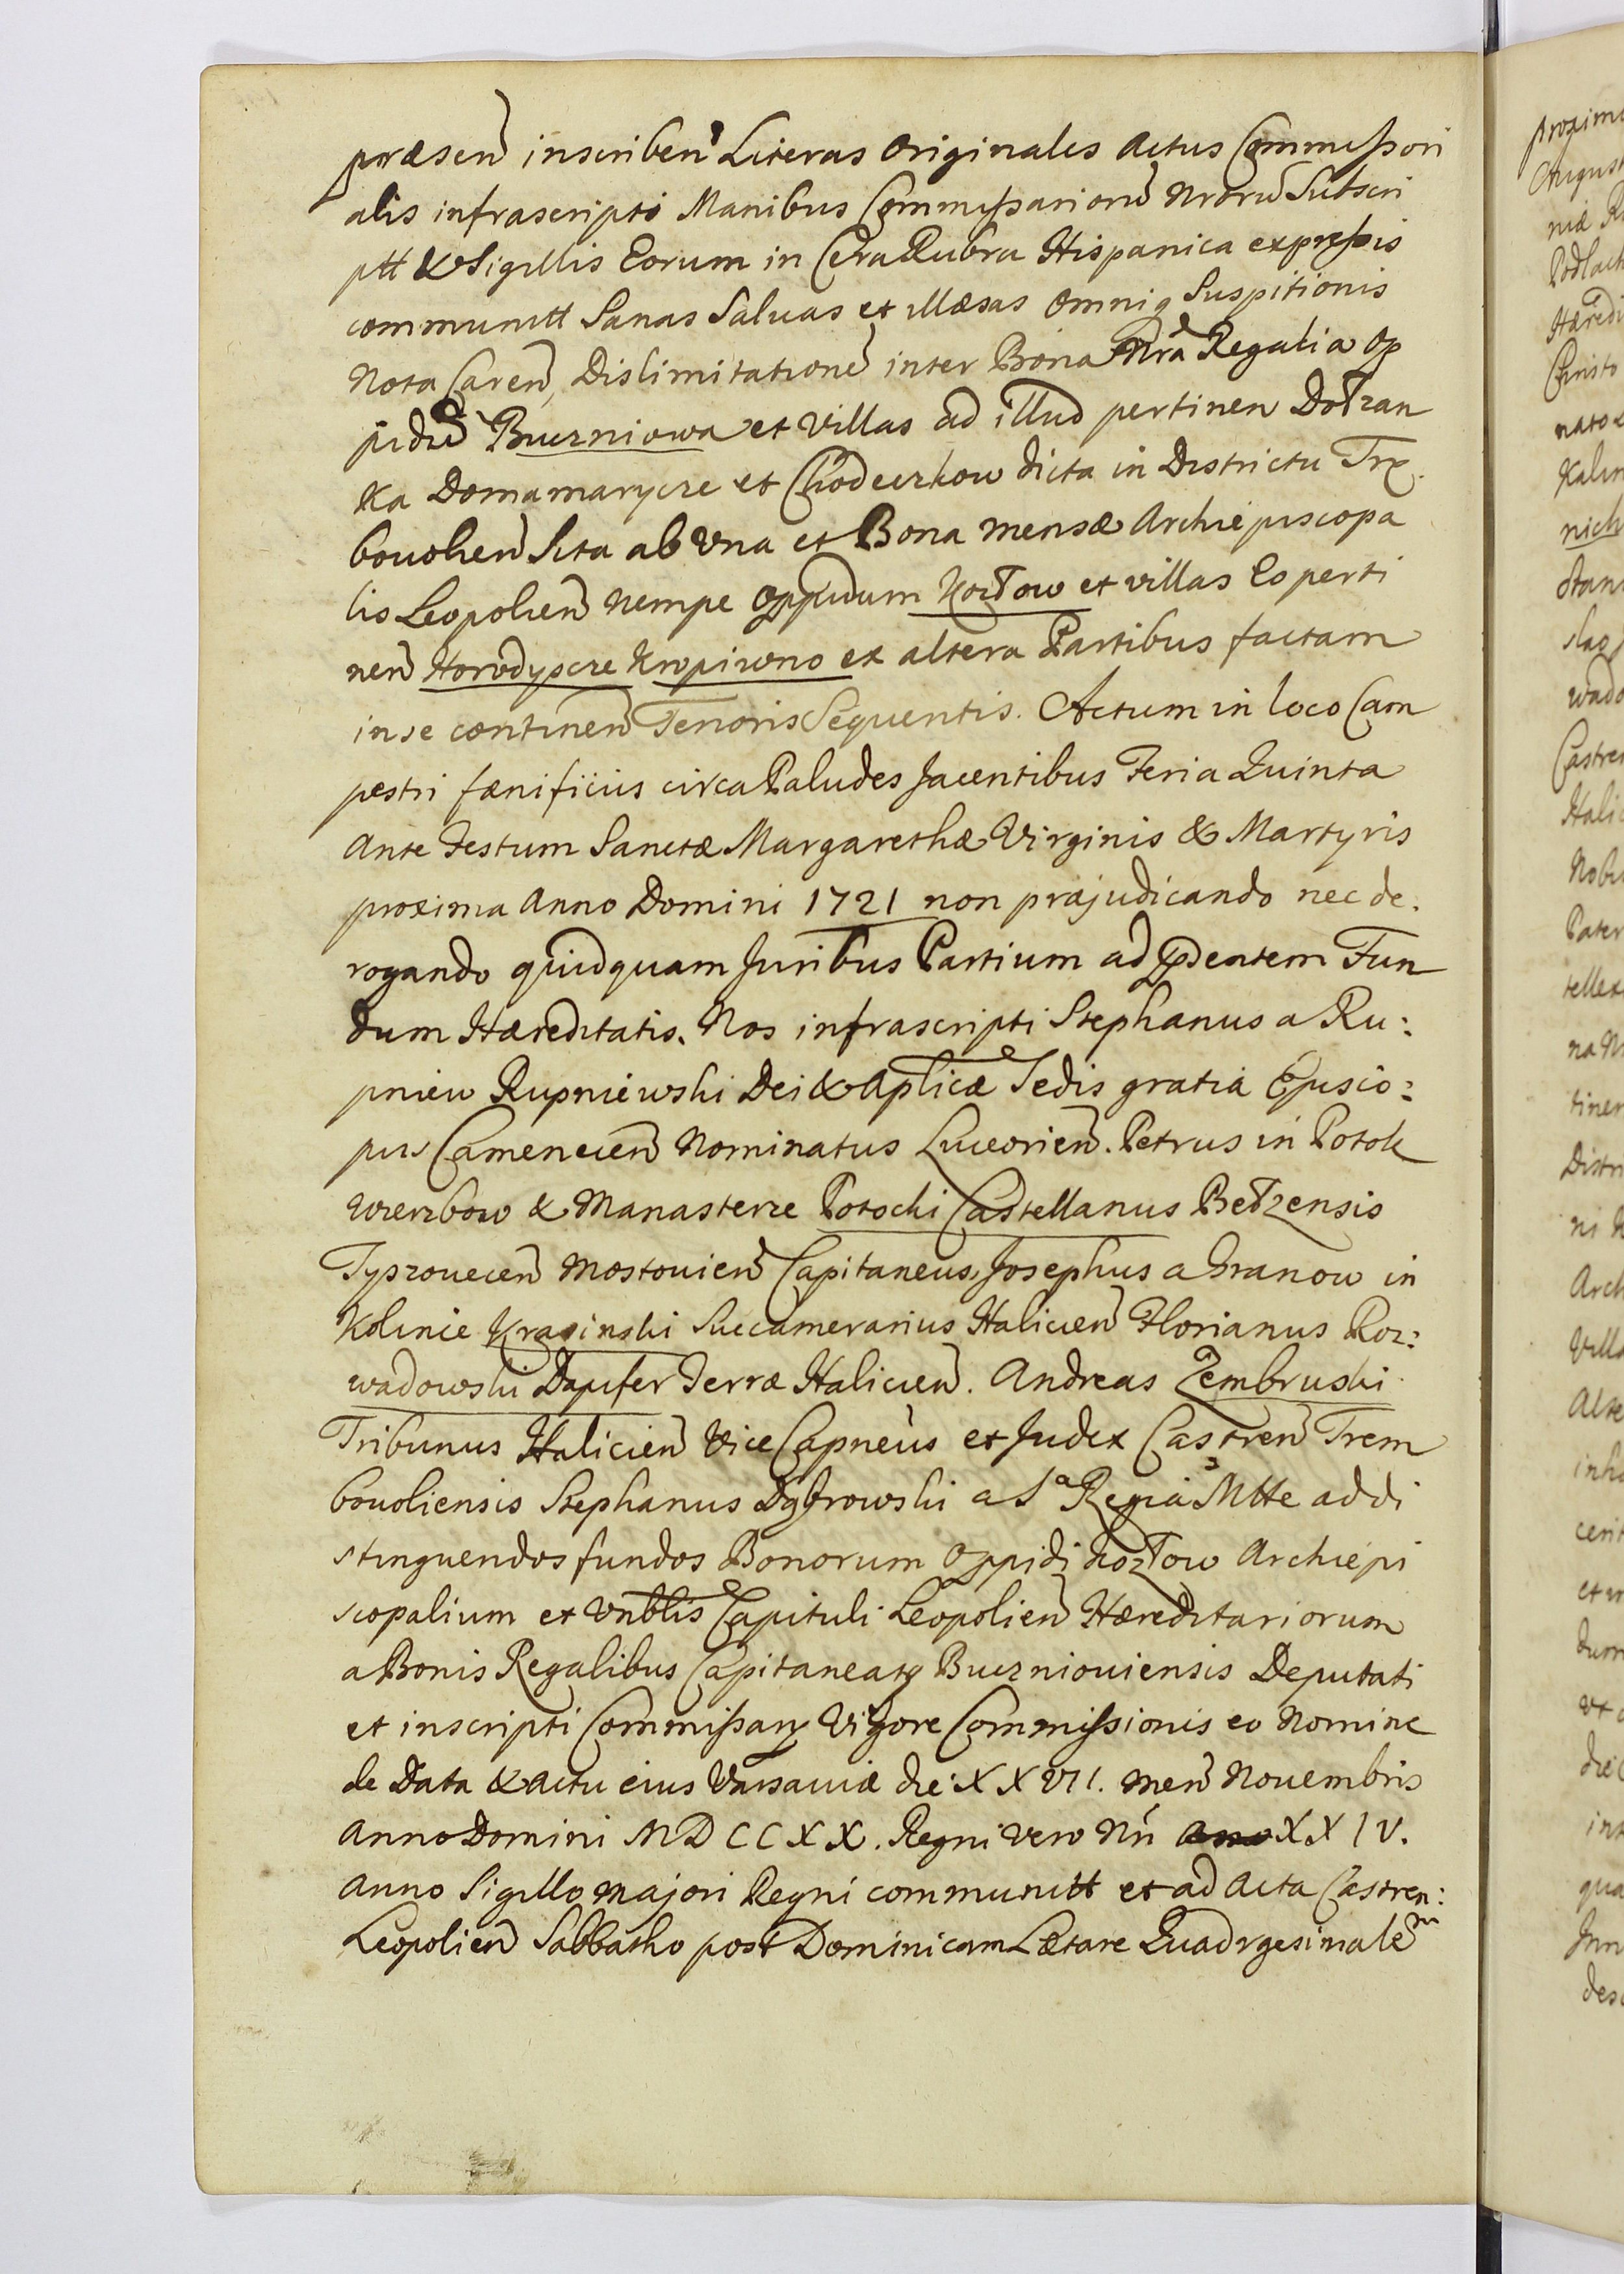 præsen inscriben Literas Originales Actus Commissori
alis infrascripti Manibus Commissarioru Nroru Subscri
ptt & Sigillis Eorum in Cera Rubra Hispanica expressis
communitt Sanas Saluas et illæsas omniq Suspitionis
Nota Caren, Dislimitatione inter Bona Nra Regalia Op
pidu Buczniowa et Villas ad illud pertinen Dołzan
ka Domamarycze et Chodeczkow dicta in Districtu Tre
bowlien Sita ab Vna et Bona mensæ Archiepiscopa
lis Leopolien nempe Oppidum Kozłow et villas Eo perti
nen Horodyscze Kropiwno ex altera Partibus factam
in se continen Tenoris Sequentis. Actum in loco Cam
pestri fænificiis circa Paludes Jacentibus Feria Quinta
Ante Festum Sanctæ Margarethæ Virginis & Martyris
proxima Anno Domini 1721 non præjudicando nec de:
rogando quidquam Juribus Partium ad
 Fun
dum Hæreditatis. Nos infrascripti Stephanus a Ru:
pniew Rupniewski Dei & Aplicæ Sedis gratia Episco:
pus Camenecen Nominatus Luceorien. Petrus in Potok
Wierzbow & Manasterze Potocki Castellanus Bełzensis
Tyszouecen Mostouien Capitaneus, Josephus a Granow in
Kolinie Krasinski Succamerarius Halicien Florianus Roz:
wadowski Dapifer Terræ Halicien. Andreas Zembruski
Tribunus Halicien Vice Capneus et Judex Castren Trem
bouoliensis Stephanus Dąbrowski a Sa Regia Mtte ad di
stinguendos fundos Bonorum Oppidi Kozłow Archiepi
scopalium et Vnblis Capituli Leopolien Hæreditariorum
a Bonis Regalibus Capitaneatq Buczniouiensis Deputati
et inscripti Commissary Vigore Commissionis eo Nomine
de Data & Actu eius Varsauiæ die XXVII. men Nouembris
Anno Domini MDCCXX. Regni vero Nri XXIV.
Anno Sigillo majori Regni communitt et ad Acta Castren:
Leopolien Sabbatho post Dominicam Lætare Quadrgesimalem